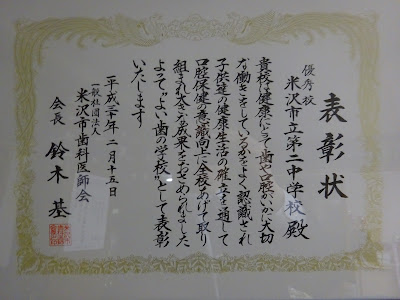 表彰状
優秀校
米沢市立第二中学校殿
貴校は健康にとって歯や口腔がいかに大切
な働きをしているかをよく認識され
子供達の健康生活の確立を通して
口腔保健の意識向上に全校あげて取り
組まれ大きな成果をおさめられました
よって“よい歯の学校”として表彰
いたします
平成二十年二月十五日
一般社団法人
米沢市歯科医師会
会長 鈴木基